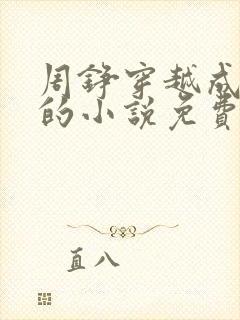 周铮穿越成
的小说免费
直八